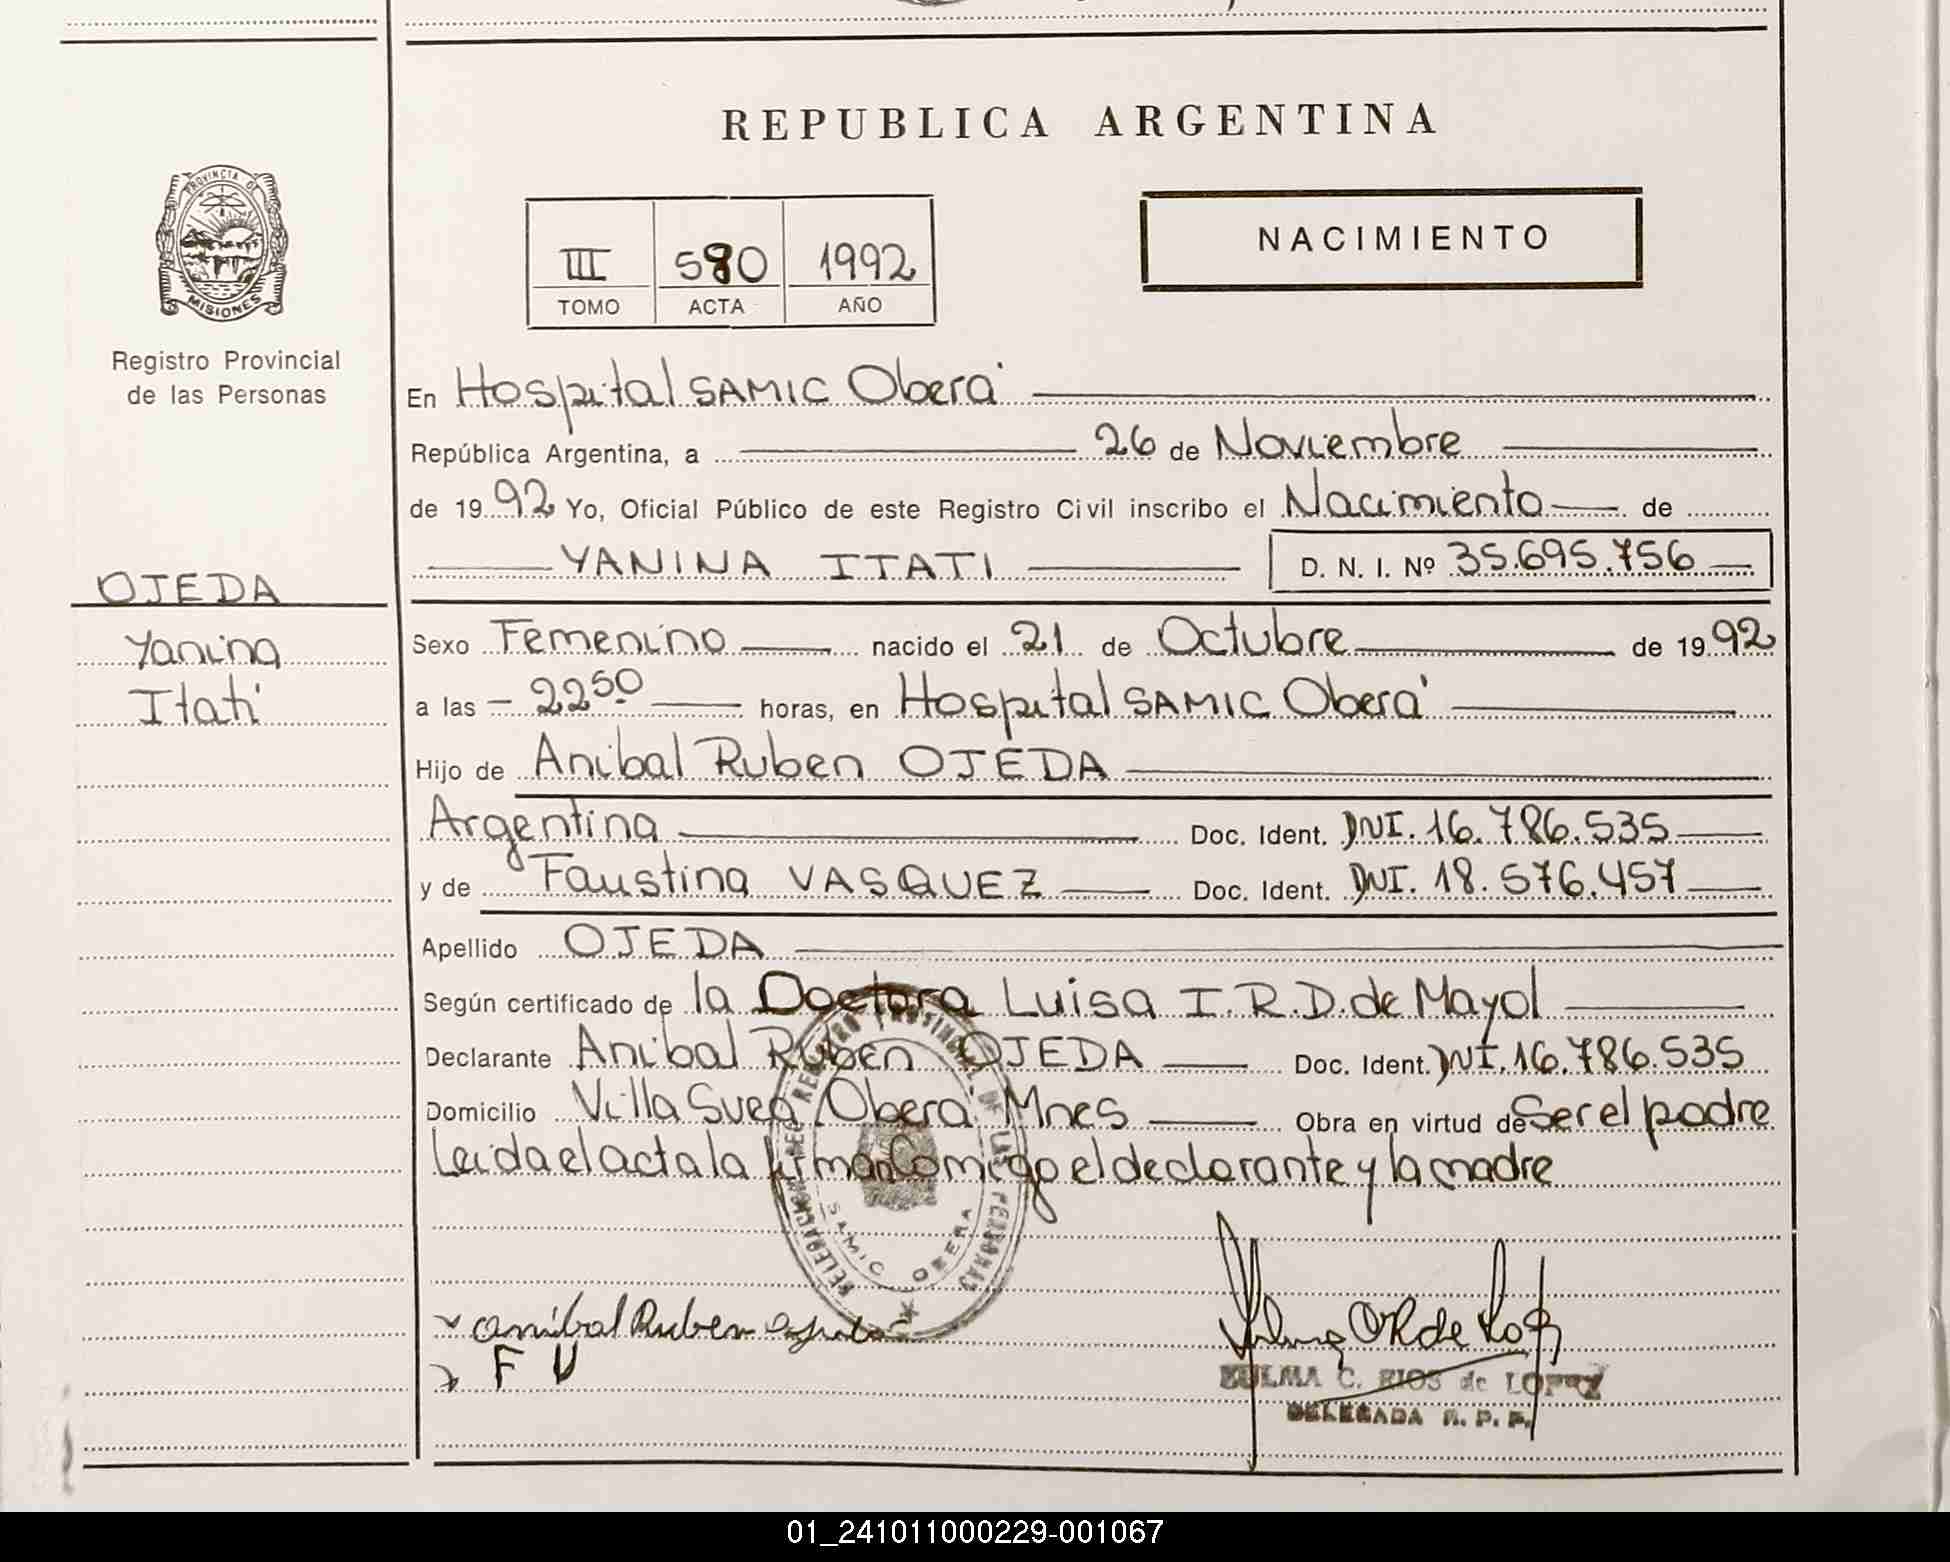 REPUBLICA ARGENTINA
PROVINCIA DE
MISIONES
Registro Provincial
de las Personas
III 580 1992
TOMO ACTA AÑO
NACIMIENTO
En Hospital SAMIC Oberá
República Argentina, a 26 de Noviembre
de 1992 Yo, Oficial Público de este Registro Civil inscribo el Nacimiento de
YANINA ITATI D. N. I. Nº 35.695.756
OJEDA
Yanina
Itatí
Sexo Femenino nacido el 21 de Octubre de 1992
a las 22 50 horas, en Hospital SAMIC Oberá
Hijo de Anibal Ruben OJEDA
Argentina Doc. Ident. DNI. 16.786.535
y de Faustina VASQUEZ Doc. Ident. DNI. 18.576.457
Apellido OJEDA
Según certificado de la Doctora Luisa I.R.D. de Mayol
Declarante Anibal Ruben OJEDA Doc. Ident. DNI. 16.786.535
Domicilio Villa Svea Oberá Mnes Obra en virtud de Ser el padre
Leida el acta la firman Comigo el declarante y la madre
DELEGACION DEL REGISTRO PROVINCIAL DE LAS PERSONAS
SAMIC OBERA
anibal Ruben
F V
ZULMA C. RIOS de LOPEZ
DELEGADA R. P. P.
01_241011000229-001067